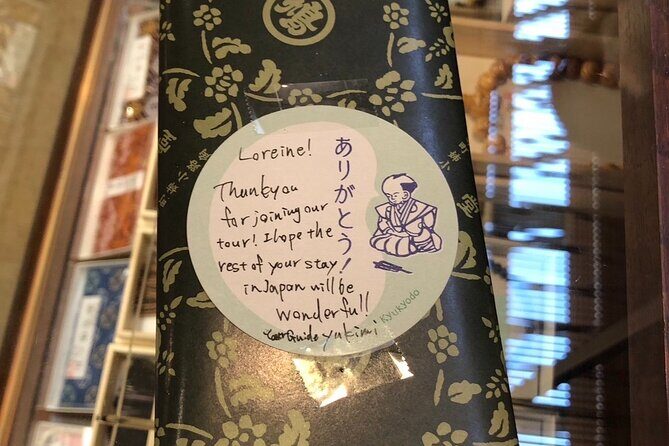 Loreine!
Thankyou
for joining our
tour! I hope the
rest of your stay
in Japan will be
wonderful!
Tour Guide yukimi
ありがとう!
KYUKYODO